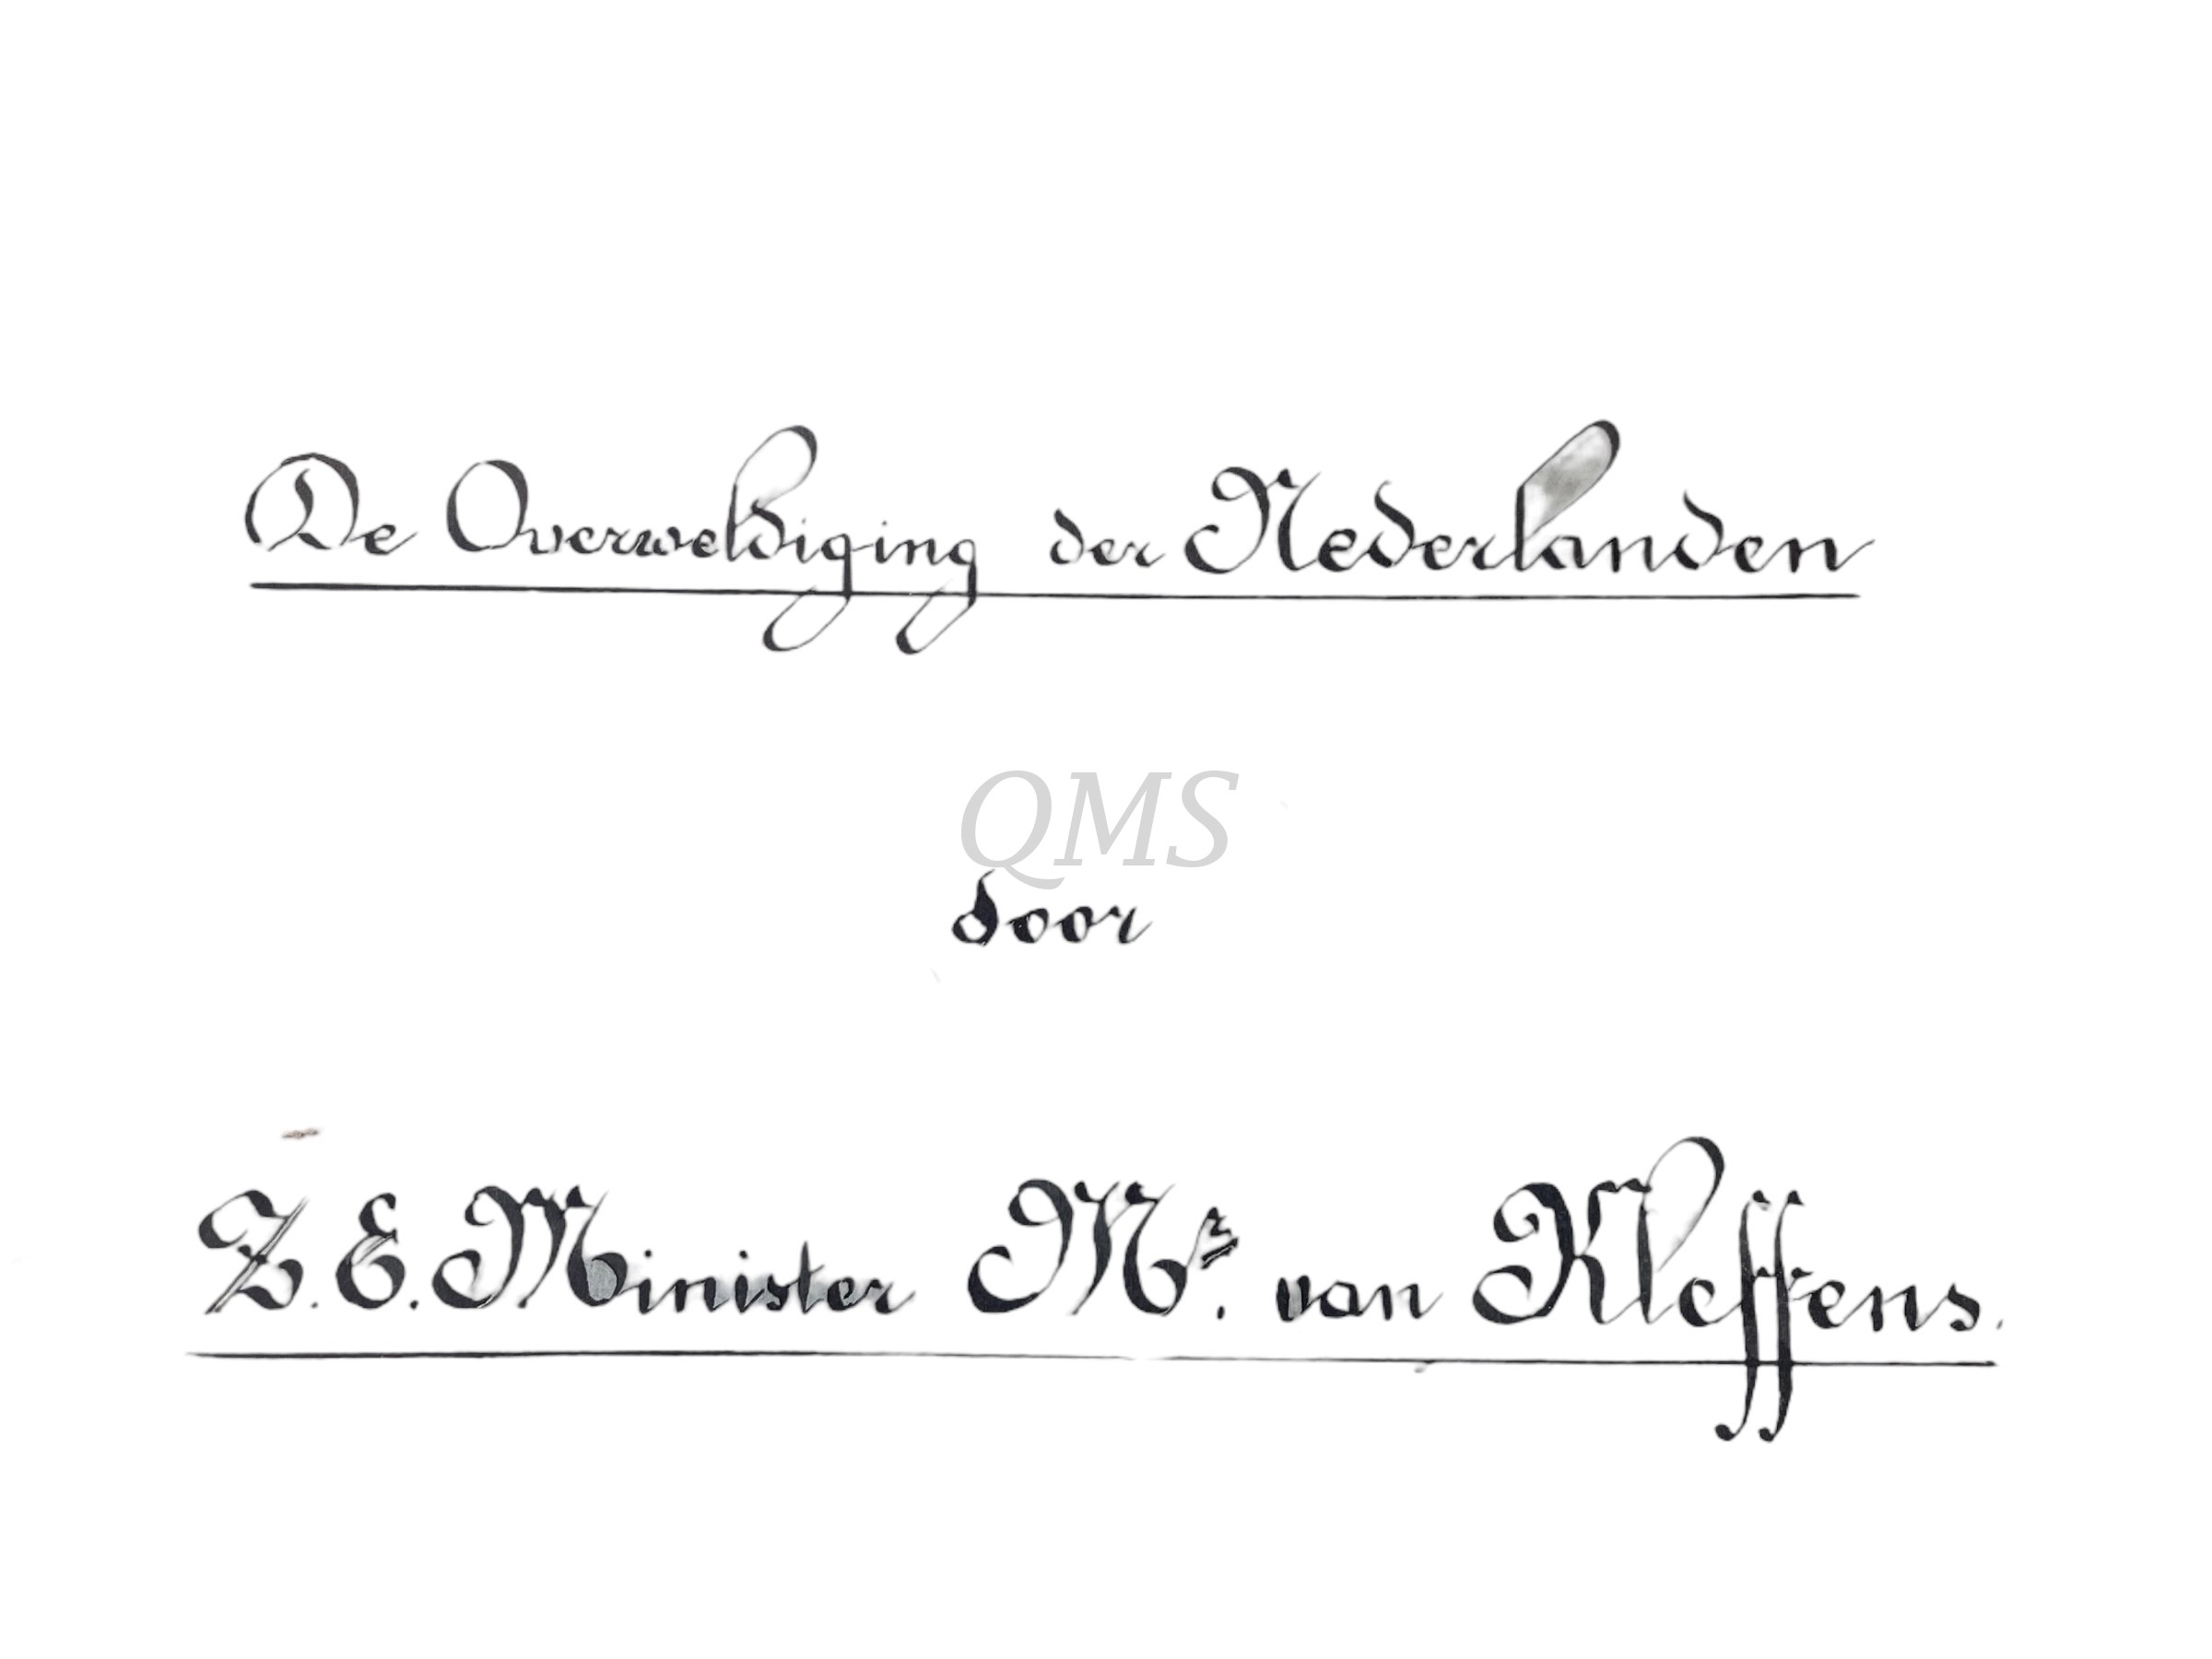 De Overweldiging der Nederlanden
QMS
door
Z.E. Minister Mr. van Kleffens.